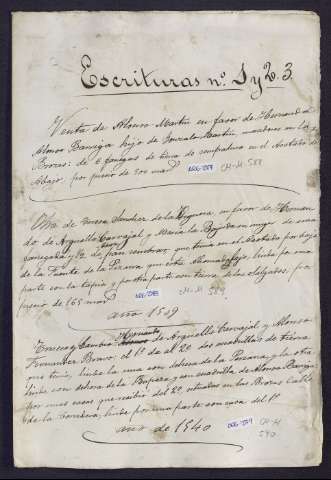 Escrituras nº 1 y 2. 3.
Venta de Alonso Martin en favor de Hernando
Alonso Barriga hijo de Gonzalo Martin, vecinos en las
Brozas: de 6 fanegas de tierra de sembradura en el
Abajo, por precio de 500 mrs
CH-H 588
Otra de Teresa Sanchez de la Higuera, en favor de Hernan
do de Arguello Carvajal y Maria la su muger de una
fanega y 1/2 de pan sembrar, que tenia en el por bajo
de la Fuente de la Perana que está linda por una
parte con la Tapia y por otra parte con tierra de los obligados, por
precio de 165 mrs
CH-H 589
año 1519
Trueque y Cambio de Hernando de Arguello Carvajal y Alonso
Fernandez Bravo, el 1º da al 2º dos cuadrillos de tierra
que tenia, linda la una con dehesa de la Perana y la otra
linda con dehesa de la y un cuadrillo de Alonso Barriga
por unas casas que recibió del 2º situadas en las Brozas Calle
de la linda por una parte con casa del 1º
CH-H
590
año de 1540